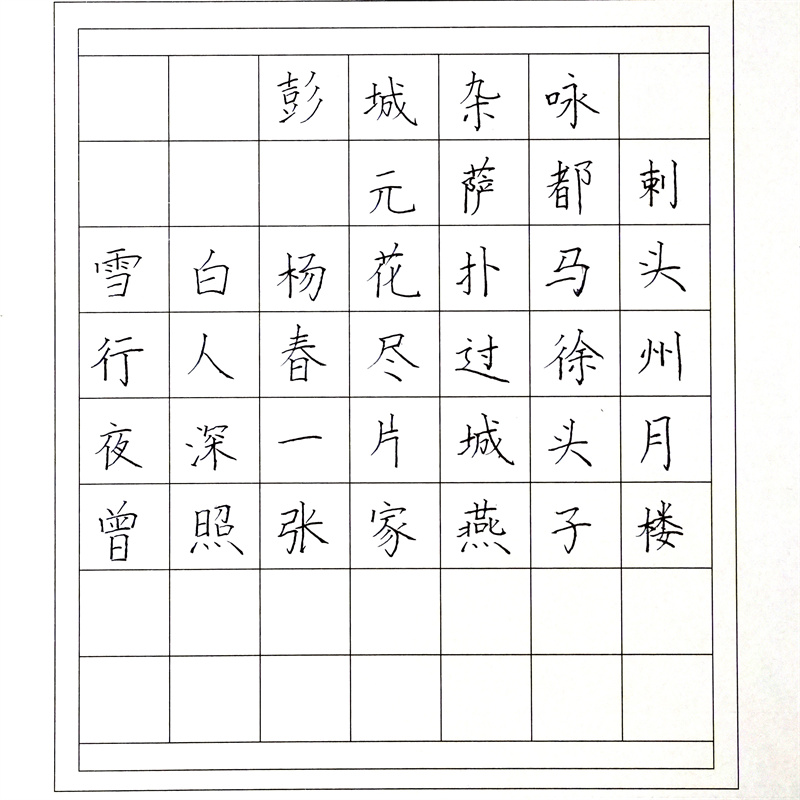 彭城杂咏
元萨都剌
雪白杨花扑马头
行人春尽过徐州
夜深一片城头月
曾照张家燕子楼